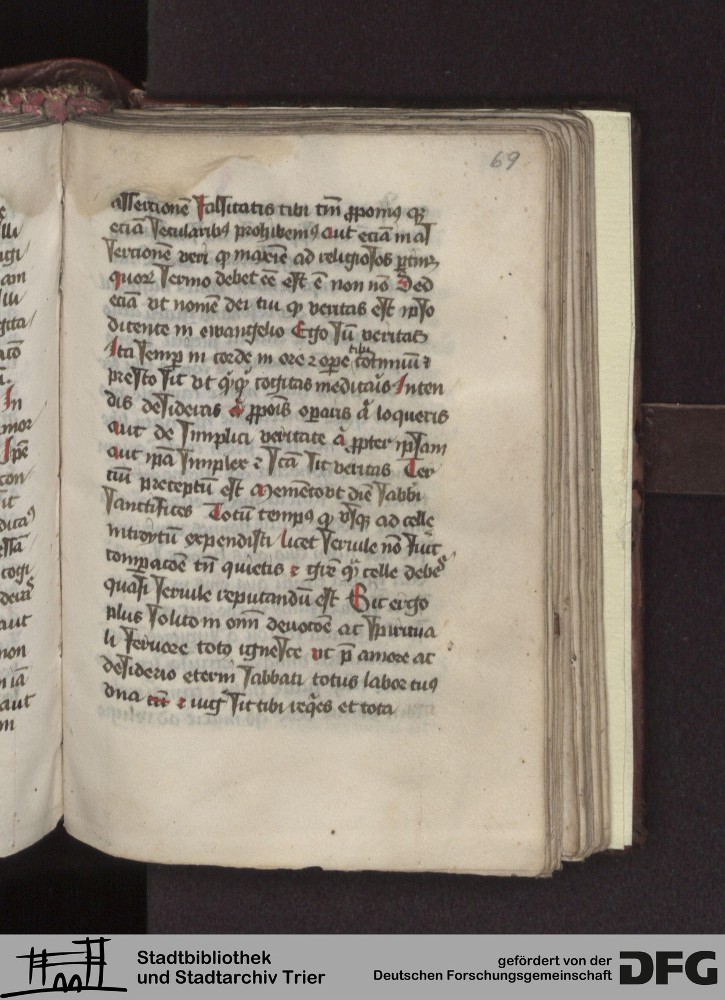 69
assercionē falsitatis tibi tm̄ ꝓponiꝰ qꝫ
eciā secularibꝰ prohibemꝰ aut eciā in as
sercionē veri qꝫ maxīē ad religiosos ꝑtinꝫ
quoꝝ sermo debet ēē est ē non nō Sed
eciā vt nomē dei tui qꝫ veritas est ip̄o
dicente in ewangelio Ergo sū veritas
Ita semꝑ in corde in ore ⁊ oꝑe tibi
presto sit vt qͥcqͥ cogitas meditaris Inten
dis desideras ꝓponis oꝑaris loqueris
aut de simplici veritate ꝓpter ip̄am
aut ip̄a simplex ⁊ sc̄a sit veritas Ter
ciū preceptū est Memēto vt diē sabbi
sanctifices Totū tempus qꝫ vsqꝫ ad celle
introytū expendisti licet seruile nō fuit
comꝑacōe tn̄ quietis ⁊ celle debes
quasi seruile reputandū est Sic ergo
plus solito in om̄i deuocōe ac spiritua
li feruore toto ignesce vt p̄ amore ac
desiderio eterni sabbati totus labor tuꝰ
sit tibi reqͥes et tota
Stadtbibliothek
und Stadtarchiv Trier
gefördert von der
Deutschen Forschungsgemeinschaft
DFG